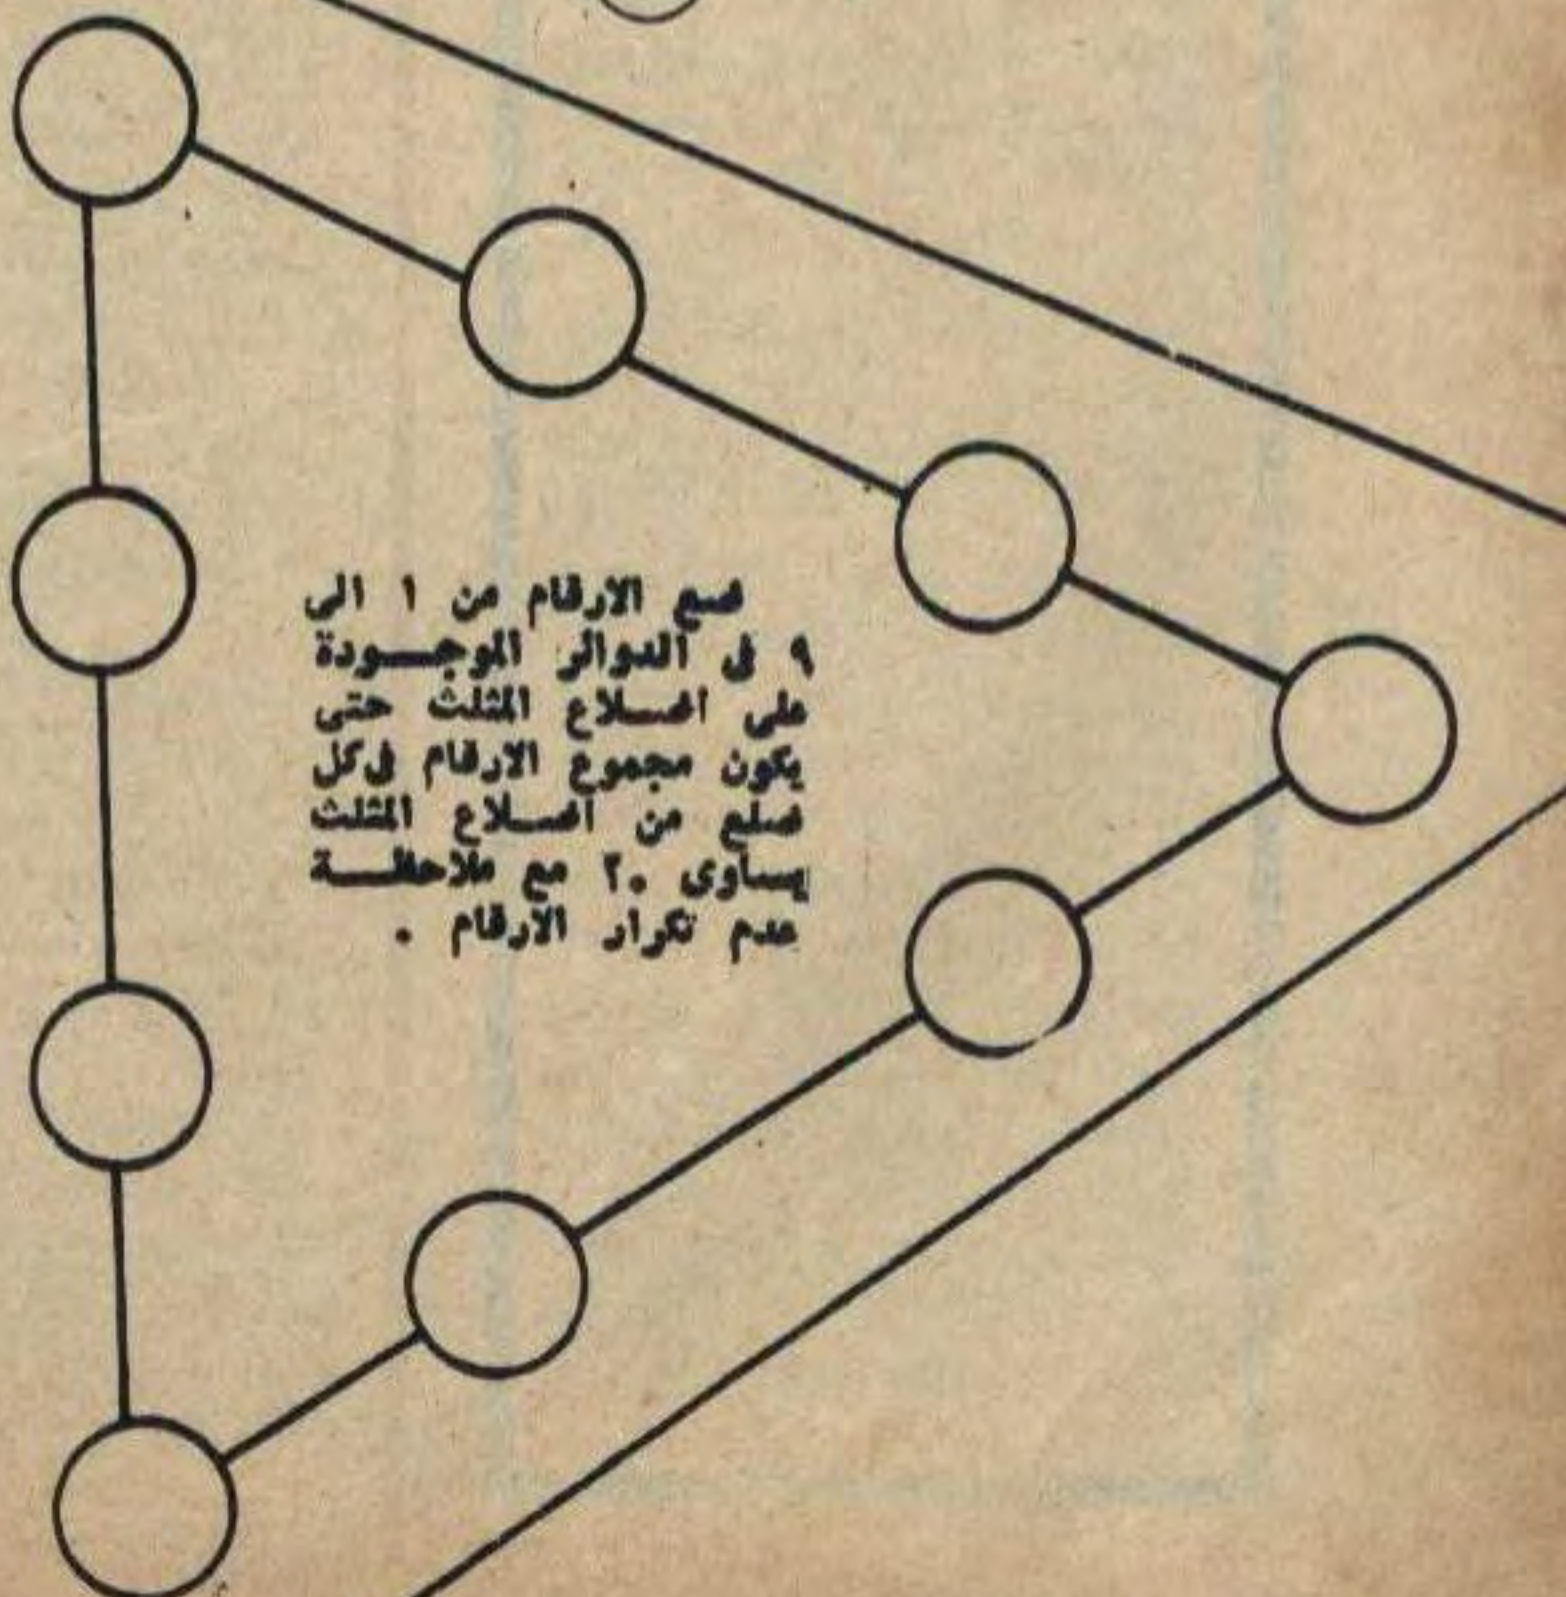 ضع الارقام من ١ الى
٩ فى الدوائر الموجـــودة
على اضـــلاع المثلث حتى
يكون مجموع الارقام فى كل
ضلع من اضـــلاع المثلث
يساوى ٢٠ مع ملاحظـــة
عدم تكرار الارقام .